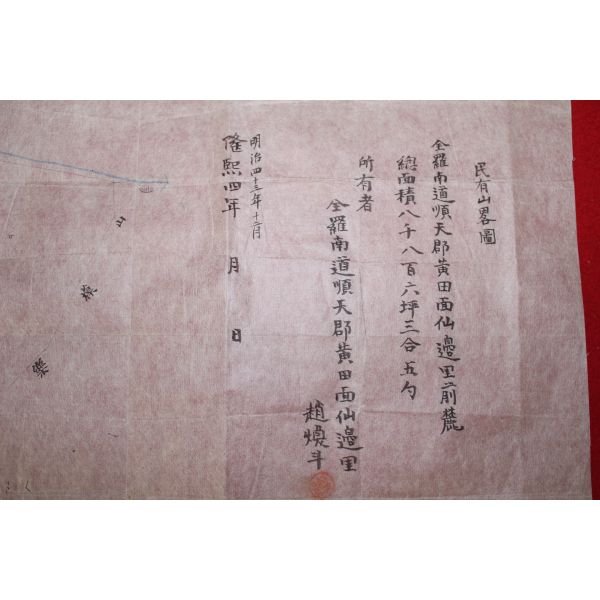 民有山畧圖
全羅南道順天郡黃田面仙邊里前麓
總面積八千八百六坪三合五勺
所有者
全羅南道順天郡黃田面仙邊里
趙煥斗
明治四十三年十二月
隆熙四年 月 日
山